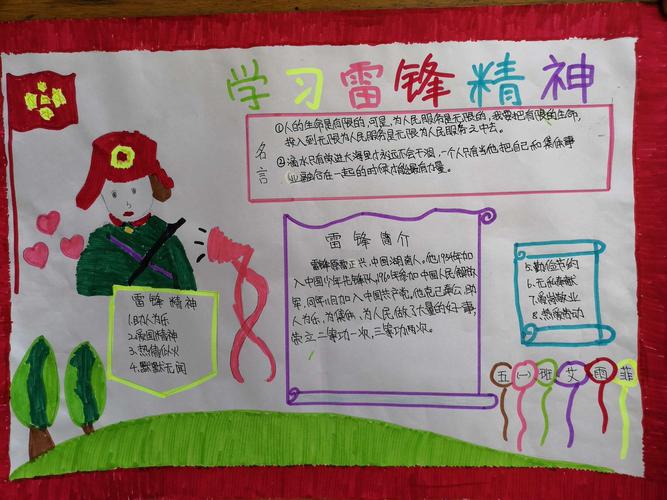 学习雷锋精神
名言
①人的生命是有限的,可是,为人民服务是无限的,我要把有限的生命,
投入到无限为人民服务是无限为人民服务之中去。
②滴水只有放进大海里才永远不会干涸,一个人只有当他把自己和集体事
业融合在一起的时候才能最有力量。
雷锋简介
雷锋原名正兴,中国湖南人。他1954年加
入中国少年先锋队,1960年参加中国人民解放
军,同年11月加入中国共产党。他克己奉公,助
人为乐,为集体、为人民做了大量的好事,
荣立二等功一次,三等功两次。
雷锋精神
1.助人为乐
2.爱国精神
3.热情似火
4.默默无闻
5.勤俭节约
6.无私奉献
7.爱岗敬业
8.热爱劳动
五(一)班艾雨菲